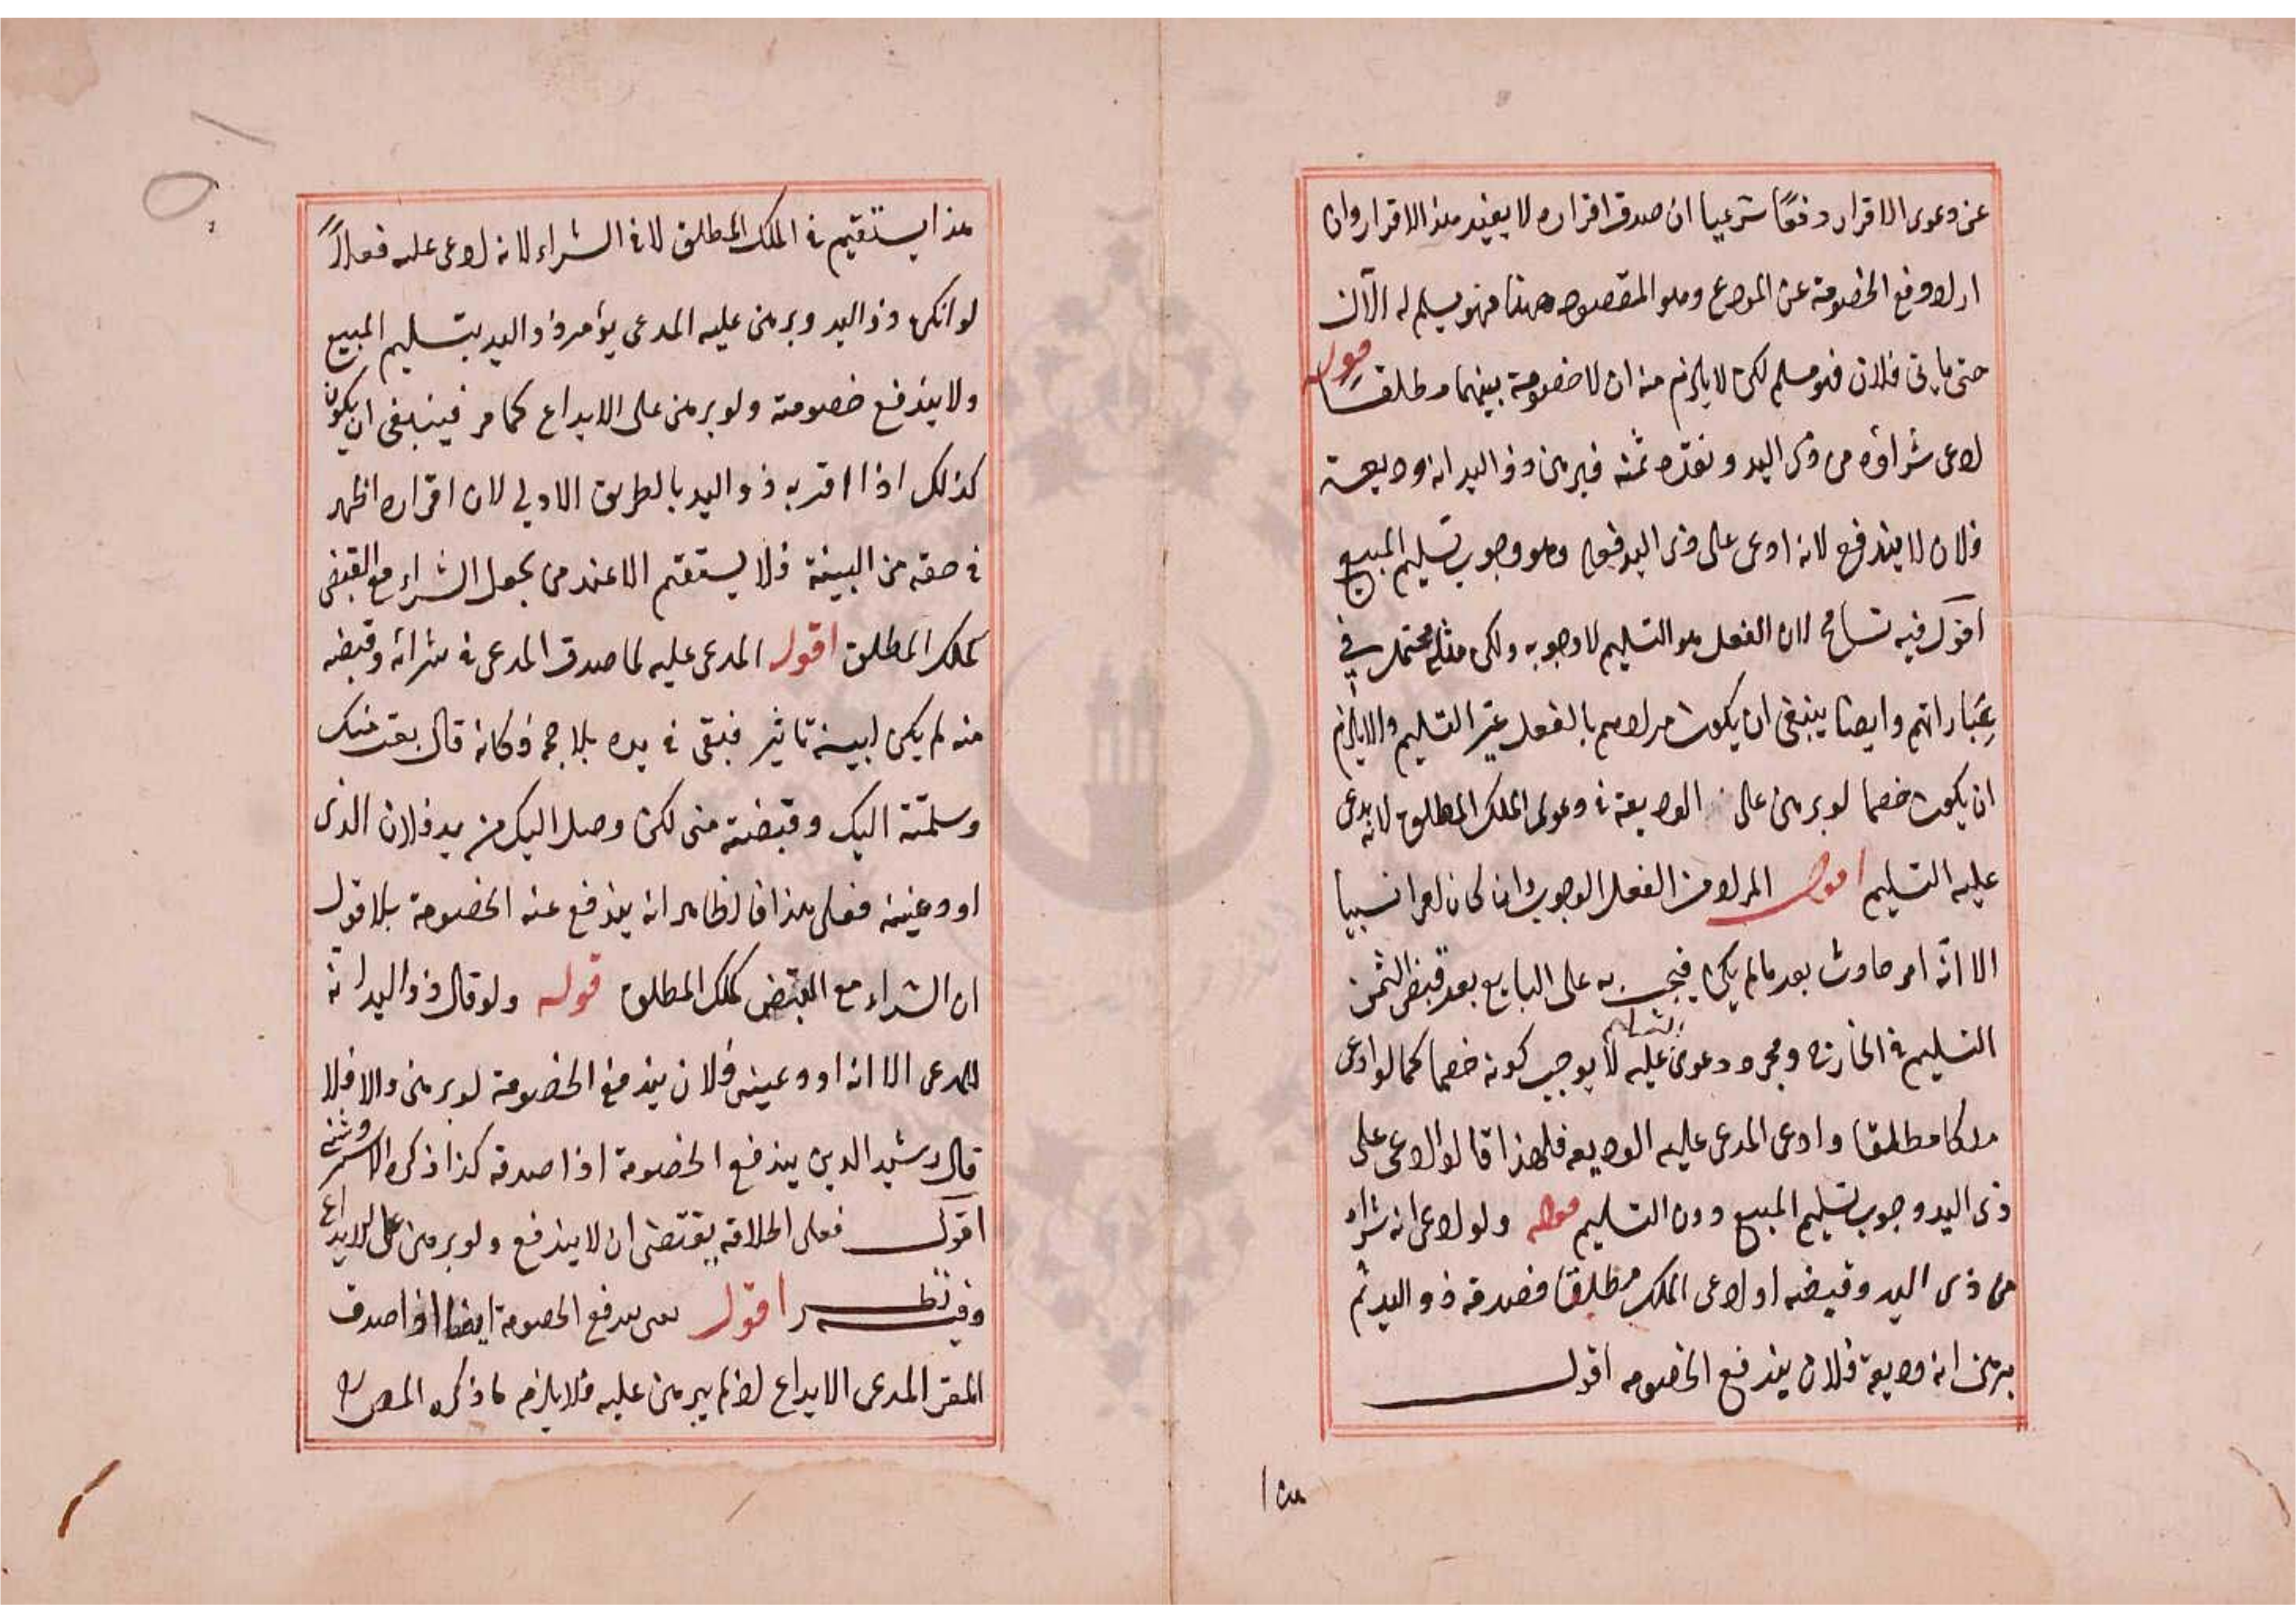 عن دعوى الاقرار دفعًا شرعيا ان صدق اقراره لا يفيد هذا الاقرار وان
اراد دفع الخصومة عن المودع وهو المقصود ههنا فهو يسلم له الآن
حتى ياتى فلان فهو مسلم لكن لا يلزم منه ان لا خصومة بينهما مطلقا قوله
ادعى شراؤه من ذى اليد ونقده ثمنه فبرهن ذو اليد انه وديعة
فلان لا يندفع لانه ادعى على ذى اليد فعلا وهو وجوب تسليم المبيع
اقول فيه تسامح لان الفعل هو التسليم لا وجوبه ولكن مثله محتمل في
عباراتهم وايضا ينبغى ان يكون مرادهم بالفعل غير التسليم والا يلزم
ان يكون خصما لو برهن على الوديعة فى دعوى الملك المطلق لانه يدعى
عليه التسليم اقول المراد من الفعل الوجوب وان كان امرا نسبيا
الا انّه امر حادث بعد ما لم يكن فيجب به على البايع بعد قبض الثمن
التسليم فى الخارج ومجرد دعوى عليه التسليم لا يوجب كونه خصما كما لو ادعى
ملكا مطلقا وادعى المدعى عليه الوديعه فلهذا قالوا ادعى على
ذى اليد وجوب تسليم المبيع دون التسليم قوله ولو ادعى انه شراه
من ذى اليد وقبضه او ادعى الملك مطلقا فصدقه ذو اليد ثم
برهن انه وديعة فلان يندفع الخصومه اقول
هذا
هذا يستقيم فى الملك المطلق لا فى الشراء لانه ادعى عليه فعلاً
لو انكره ذو اليد وبرهن عليه المدعى يؤمر ذو اليد بتسليم المبيع
ولا يندفع خصومته ولو برهن على الايداع كما مر فينبغى ان يكون
كذلك اذا اقر به ذو اليد بالطريق الاولى لان اقراره اظهر
فى حقه من البينة فلا يستقيم الا عند من يجعل الشراء مع القبض
كملك المطلق اقول المدعى عليه لما صدق المدعى فى شرائه وقبضه
منه لم يكن لبينة تاثير فبقى فى يده بلا حجة فكانه قال بعت منك
وسلمته اليك وقبضته منى لكن وصل اليك من يد فلان الذى
اودعنيه فعلى هذا فالظاهر انه يندفع عنه الخصومة بلا قول
ان الشراء مع القبض كملك المطلق قوله ولو قال ذو اليد انّه
للمدعى الا انه اودعينيه فلان يندفع الخصومة لو برهن والا فلا
قال رشيد الدين يندفع الخصومة اذا صدقه كذا ذكره الاستروشنى
اقول فعلى اطلاقه يقتضى ان لا يندفع ولو برهن على الايداع
وفيه نظر اقول يعنى يندفع الخصومة ايضا اذا صدق
المقر المدعى الايداع اذا لم يبرهن عليه فلا يلزم ما ذكره المص